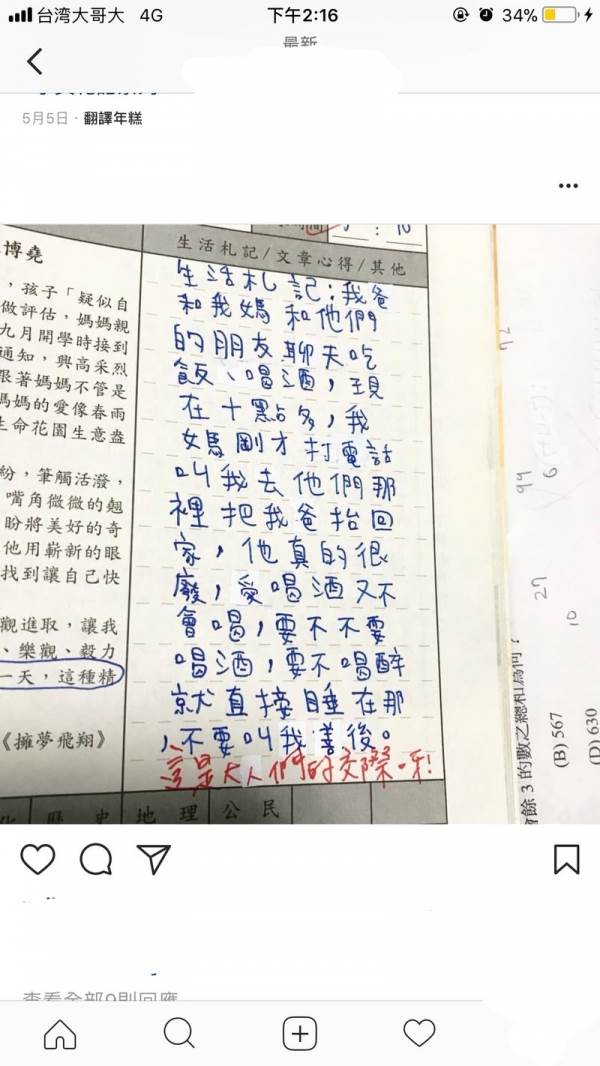 台湾大哥大 4G 下午2:16 34%
最新
5月5日 · 翻譯年糕
博堯
，孩子「疑似自
做評估，媽媽親
九月開學時接到
通知，興高采烈
跟著媽媽不管是
媽媽的愛像春雨
生命花園生意盎
紛，筆觸活潑，
嘴角微微的翹
盼將美好的奇
他用嶄新的眼
找到讓自己快
觀進取，讓我
、樂觀、毅力
一天，這種精
《擁夢飛翔》
生活札記/文章心得/其他
生活札記：我爸
和我媽和他們
的朋友聊天吃
飯、喝酒，現
在十點多，我
媽剛才打電話
叫我去他們那
裡把我爸抬回
家，他真的很
廢，愛喝酒又不
會喝，要不不要
喝酒，要不喝醉
就直接睡在那
，不要叫我善後。
這是大人們的交際呀！
歷史 地理 公民
99
6
27
10
餘 3 的數之總和為何？
(B) 567
(D) 630
查看全部9則回應